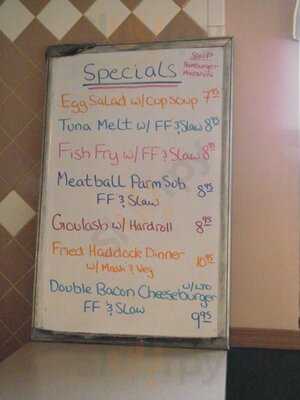 Soups
Hamburger
Macaroni
Specials
Egg Salad w/ Cup Soup 7.95
Tuna Melt w/ FF & Slaw 8.95
Fish Fry w/ FF & Slaw 8.95
Meatball Parm Sub 8.95
FF & Slaw
Goulash w/ Hardroll 8.95
Fried Haddock Dinner 10.95
w/ Mash & Veg
Double Bacon Cheeseburger
w/ LTO
FF & Slaw
9.95